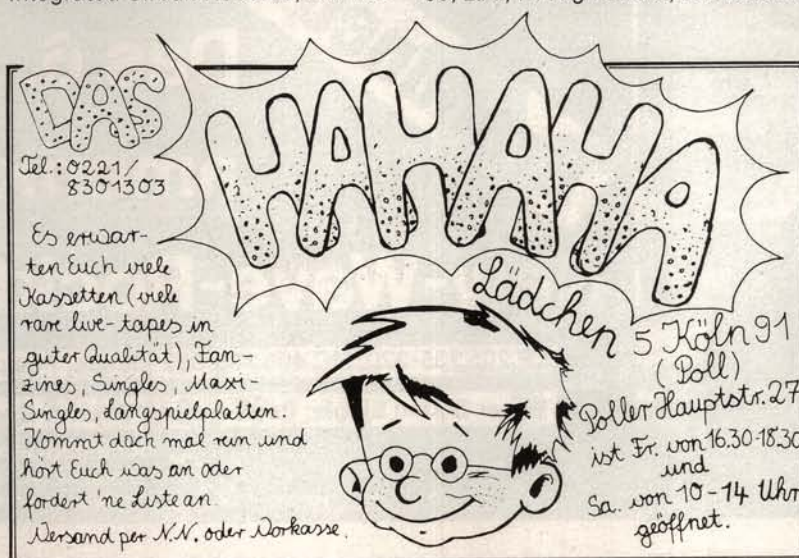 DAS
HAHAHA
Lädchen
Tel.: 0221/
8301303
Es erwar-
ten Euch viele
Kassetten (viele
rare live-tapes in
guter Qualität), Fan-
zines, Singles, Maxi-
Singles, Langspielplatten.
Kommt doch mal rein und
hört Euch was an oder
fordert 'ne Liste an.
Versand per N.N. oder Vorkasse.
5 Köln 91
(Poll)
Poller Hauptstr. 27
ist Fr. von 16.30-18.30
und
Sa. von 10-14 Uhr
geöffnet.